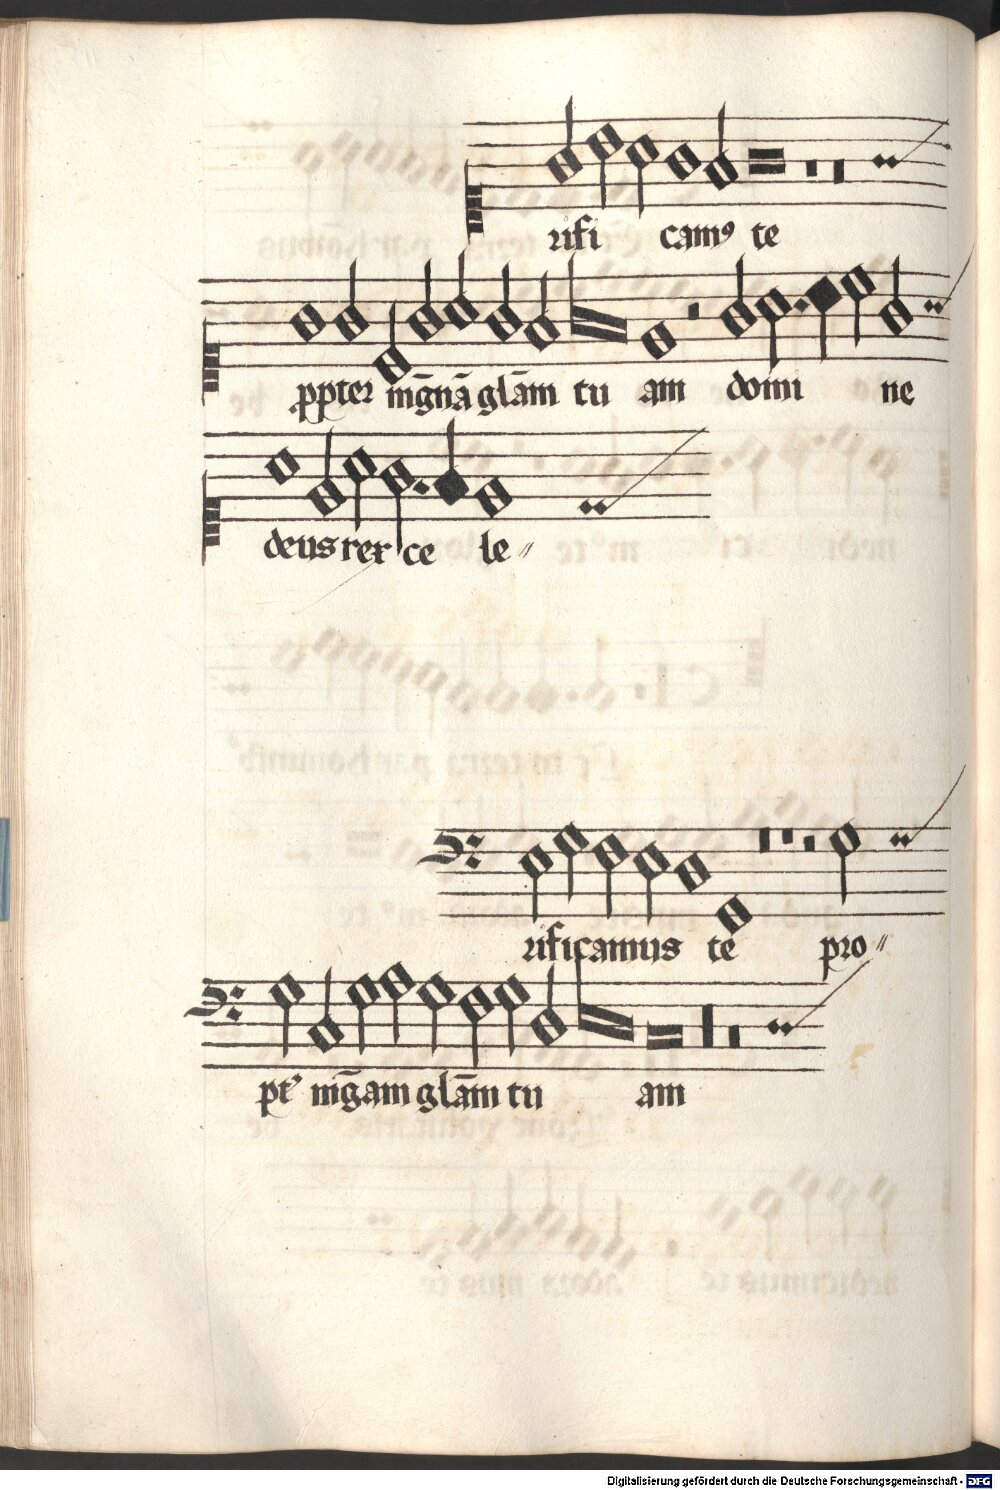 rifi camꝰ te
ppter mg̅nā glām tu am domi ne
deus rex ce le〃
rificamus te pro〃
pt᷒ mg̅am glām tu am
Digitalisierung gefördert durch die Deutsche Forschungsgemeinschaft - DFG